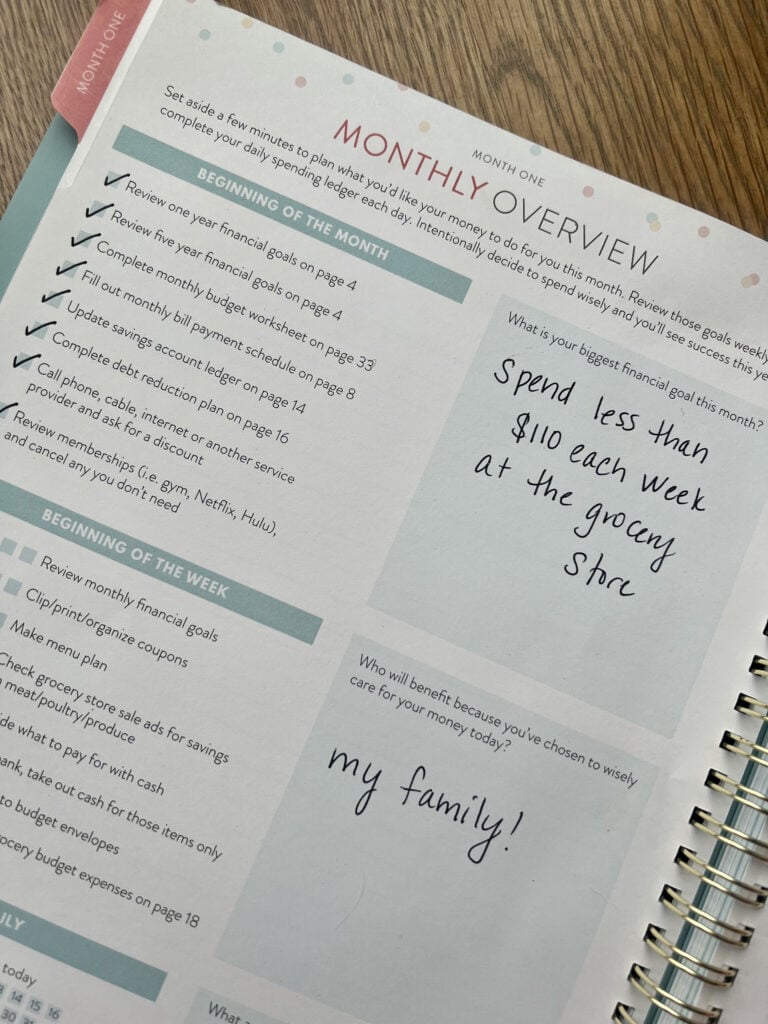 MONTH ONE
MONTH ONE
MONTHLY OVERVIEW
Set aside a few minutes to plan what you'd like your money to do for you this month. Review those goals weekly
complete your daily spending ledger each day. Intentionally decide to spend wisely and you'll see success this
BEGINNING OF THE MONTH
Review one year financial goals on page 4
Review five year financial goals on page 4
Complete monthly budget worksheet on page 33
Fill out monthly bill payment schedule on page 8
Update savings account ledger on page 14
Complete debt reduction plan on page 16
Call phone, cable, internet or another service
provider and ask for a discount
Review memberships (i.e. gym, Netflix, Hulu),
and cancel any you don't need
What is your biggest financial goal this month?
Spend less than
$110 each week
at the grocery
store
BEGINNING OF THE WEEK
Review monthly financial goals
Clip/print/organize coupons
Make menu plan
Check grocery store sale ads for savings
meat/poultry/produce
what to pay for with cash
take out cash for those items only
to budget envelopes
budget expenses on page 18
Who will benefit because you've chosen to wisely
care for your money today?
my family!
today
14 15 16
30
What